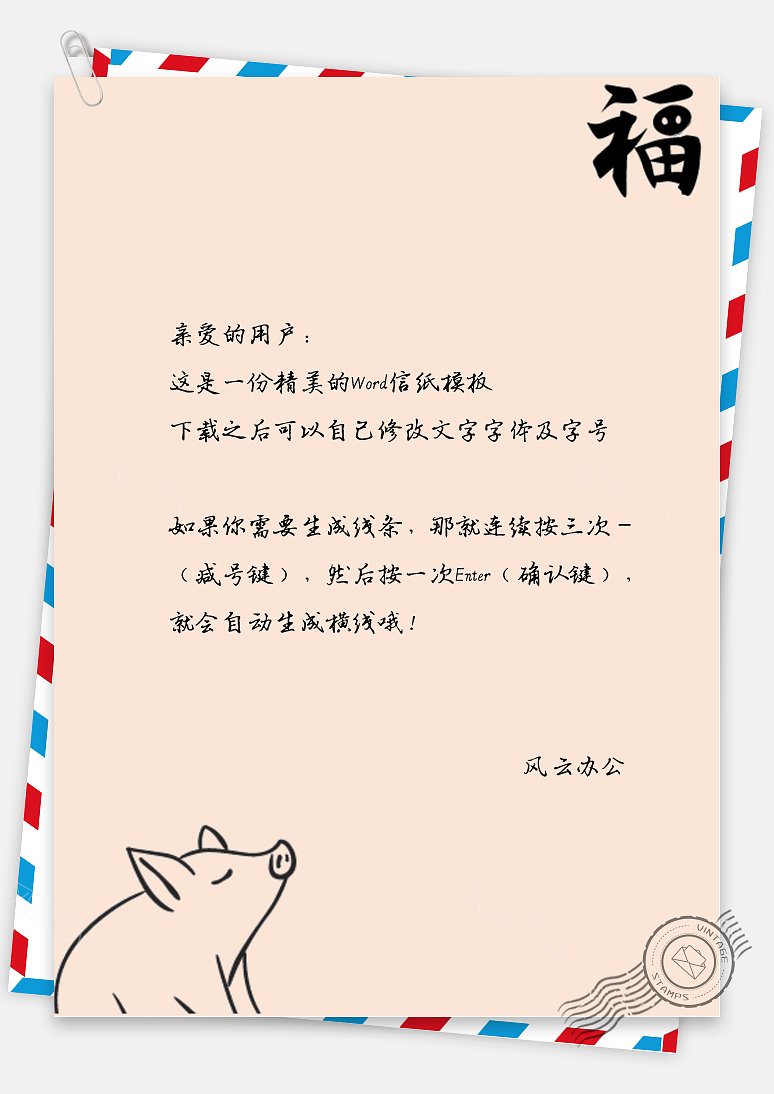 福
亲爱的用户：
这是一份精美的Word信纸模板
下载之后可以自己修改文字字体及字号
如果你需要生成线条，那就连续按三次－
（减号键），然后按一次Enter（确认键），
就会自动生成横线哦！
风云办公
VINTAGE
STAMPS
风云办公
风云办公
风云办公
风云办公